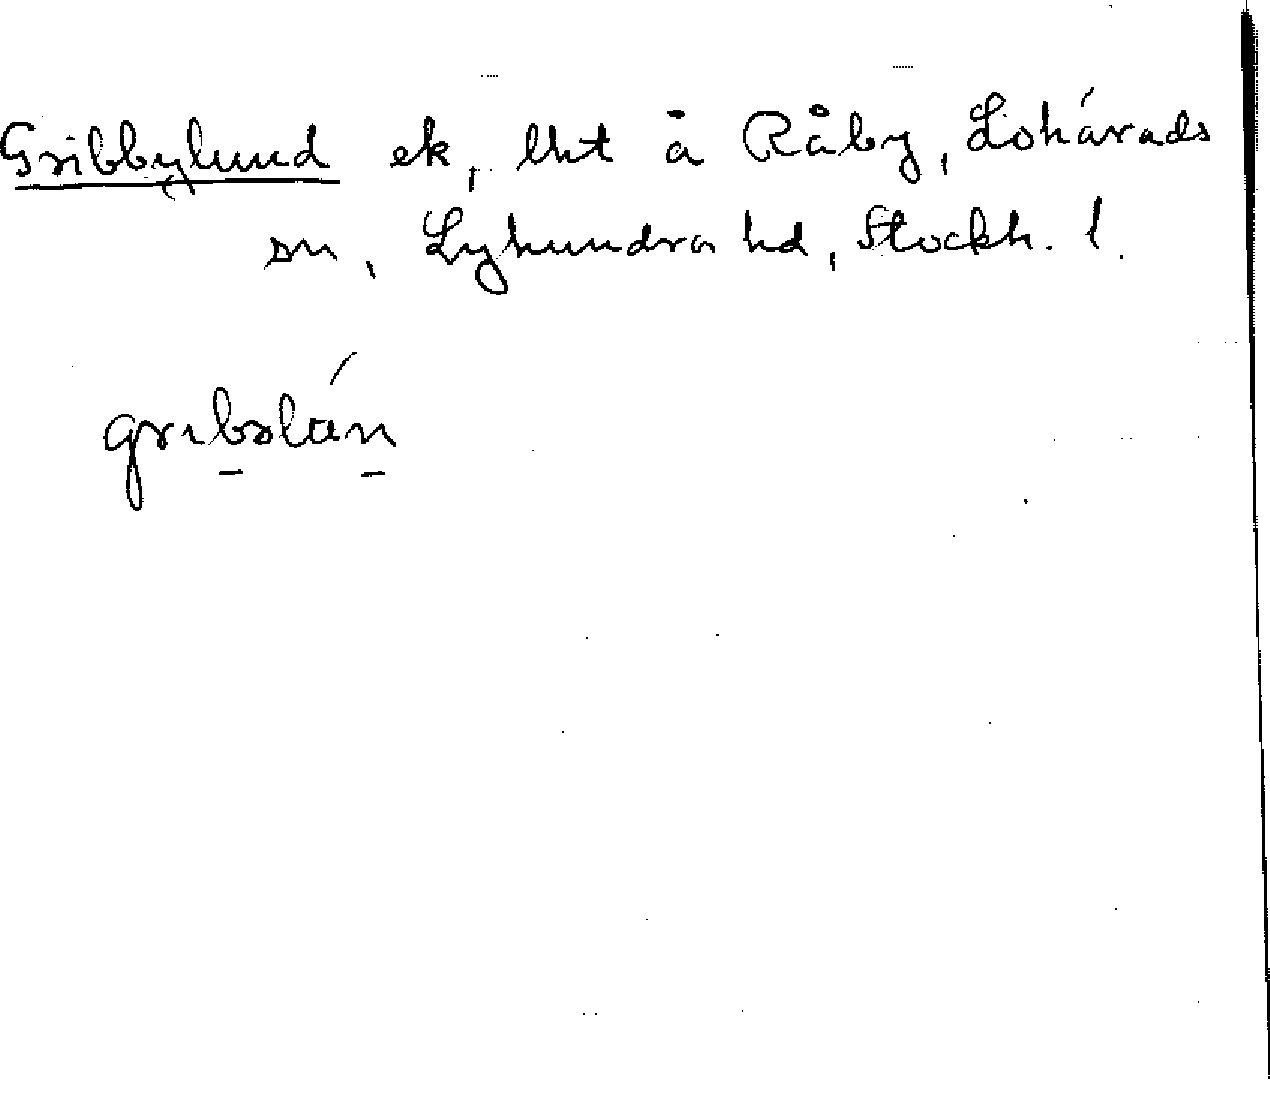 Gribbylund ek, lht å Råby, Lohärads
sn, Lyhundra hd, Stockh. l.
gribəlún